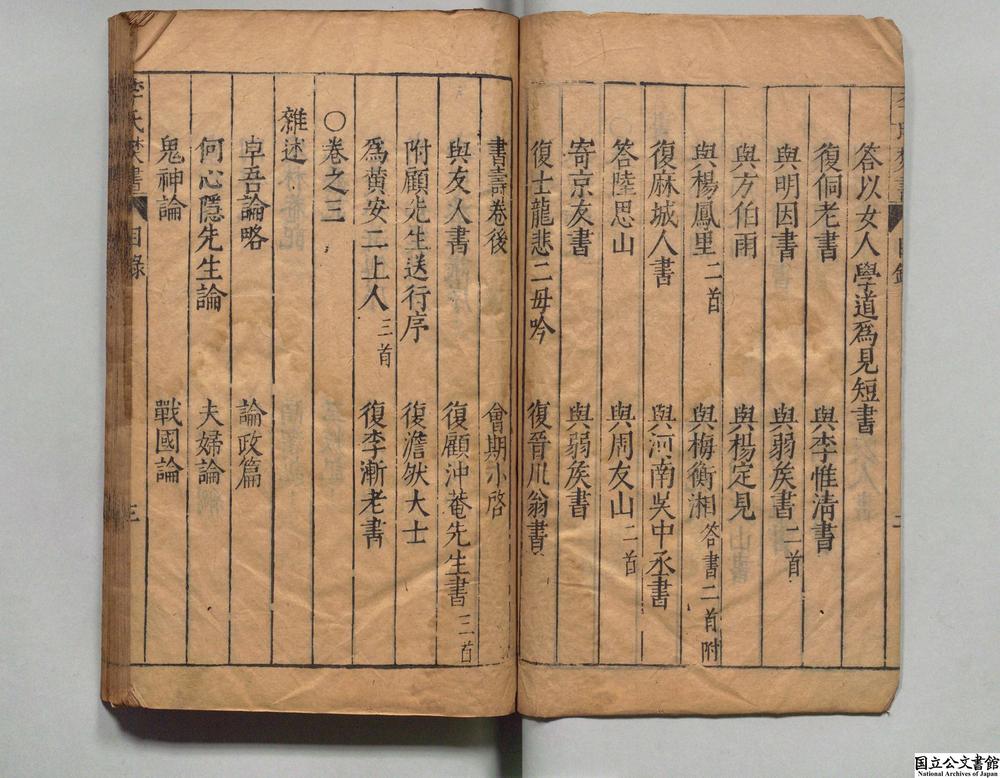 答以女人學道為見短書
復侗老書 與李惟清書
與明因書 與弱侯書二首
與方伯雨 與楊定見
與楊鳳里二首 與梅衡湘答書二首附
復麻城人書 與河南吳中丞書
答陸思山 與周友山二首
寄京友書 與弱侯書
復士龍悲二母吟 復晉川翁書
書壽卷後 會期小啓
與友人書 復顧沖菴先生書三首
附顧先生送行序 復澹然大士
為黃安二上人三首 復李漸老書
○卷之三
雜述
卓吾論略 論政篇
何心隱先生論 夫婦論
鬼神論 戰國論
李氏焚書 目錄 三
国立公文書館
National Archives of Japan